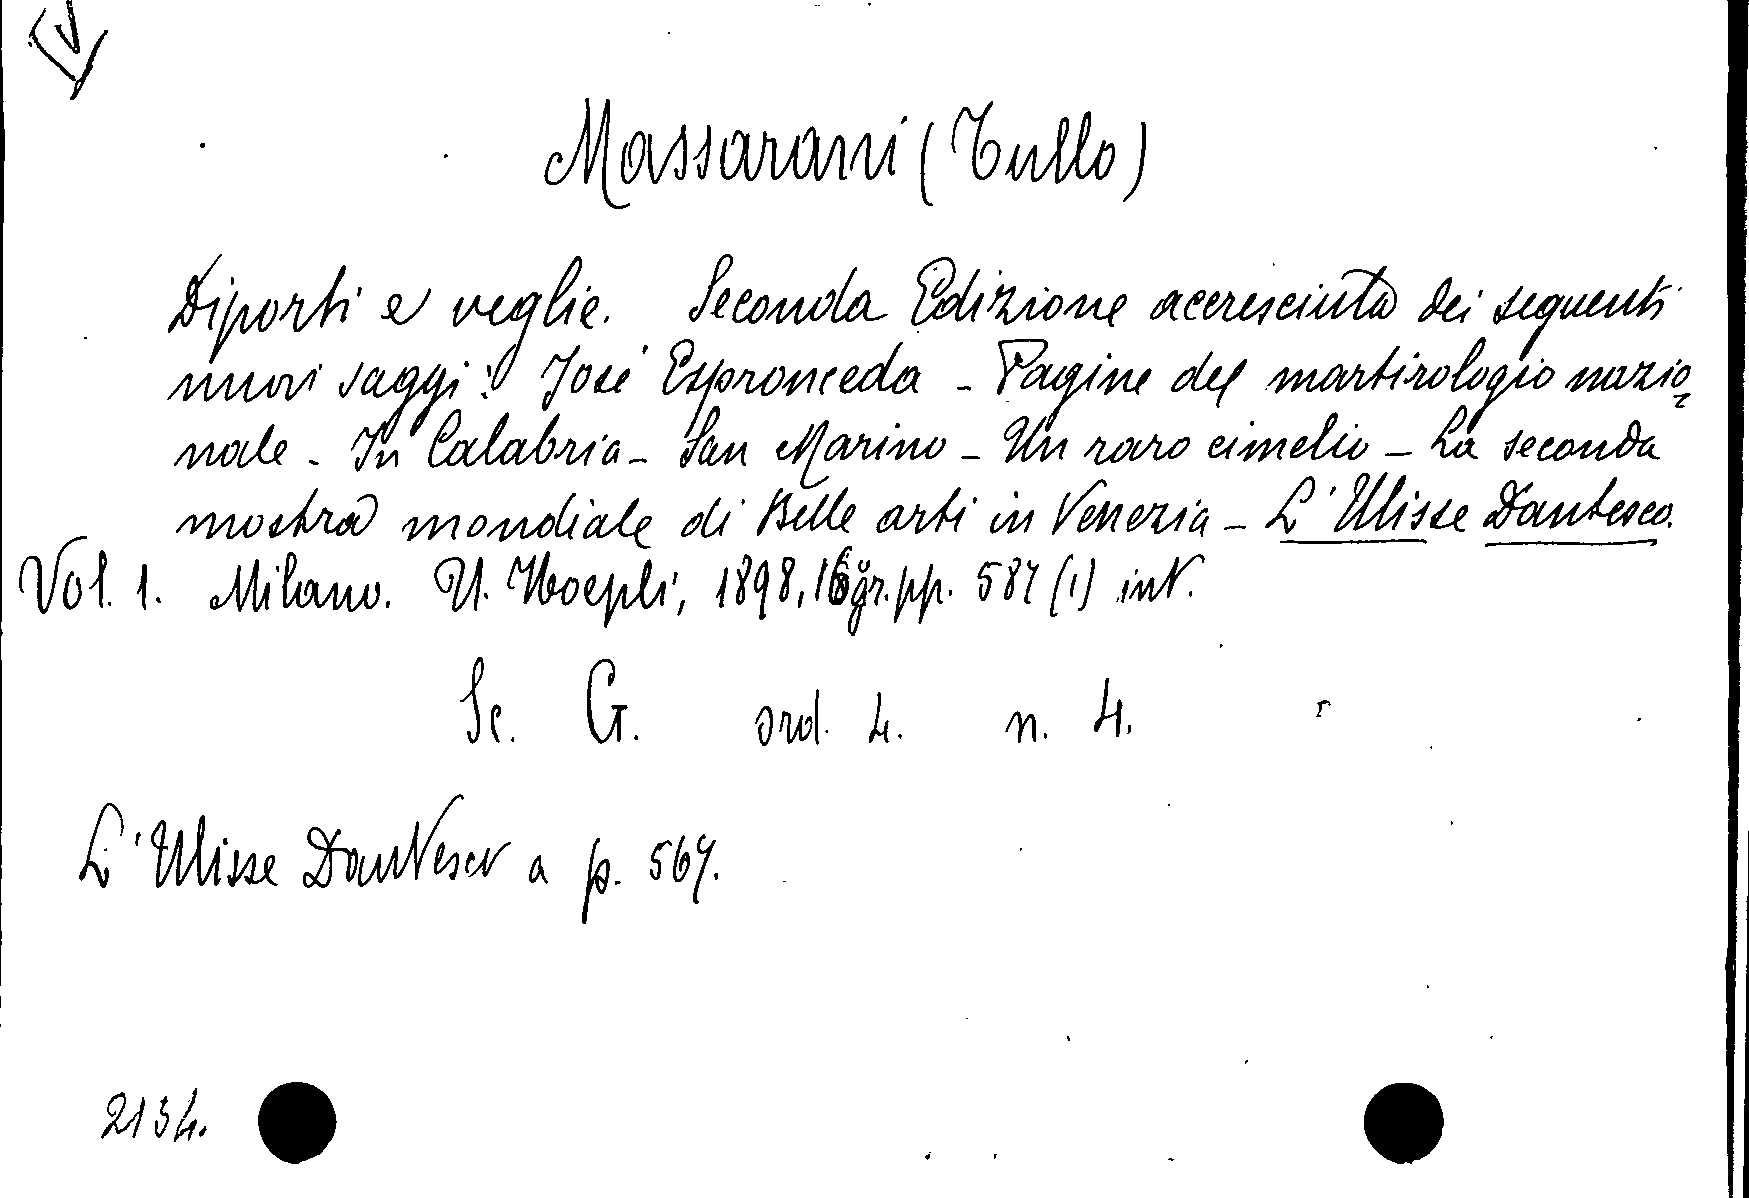 Massarani (Tullo)
Diporti e veglie. Seconda Edizione accresciuta dei seguenti
nuovi saggi: José Espronceda - Pagine del martirologio nazio
nale - In Calabria - San Marino - Un raro cimelio - La seconda
mostra mondiale di Belle arti in Venezia - L'Ulisse Dantesco.
Vol. 1. Milano. U. Hoepli, 1898, 16° gr. pp. 587 (1) int.
Sc. G. ord. 4. n. 4.
L'Ulisse Dantesco a p. 567.
2134.